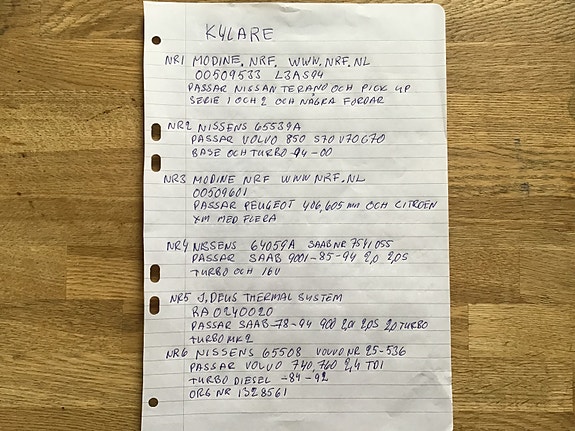 KYLARE
NR1 MODINE. NRF. WWW.NRF.NL
00509533 L3AS94
PASSAR NISSAN TERANO OCH PICK UP
SERIE 1 OCH 2 OCH NÅGRA FORDAR
NR2 NISSENS 65539A
PASSAR VOLVO 850 S70 V70 C70
BASE OCH TURBO -94-00
NR3 MODINE NRF WWW.NRF.NL
00509601
PASSAR PEUGEOT 406,605 mn OCH CITROEN
XM MED FLERA
NR4 NISSENS 64059A SAAB NR 7541055
PASSAR SAAB 9001-85-94 2,0 2,0S
TURBO OCH 16V
NR5 J. DEUS THERMAL SYSTEM
RA0240020
PASSAR SAAB -78-94 900 2,0i 2,0S 2,0 TURBO
TURBO MK2
NR6 NISSENS 65508 VOLVO NR 25-536
PASSAR VOLVO 740,760 2,4 TDI
TURBO DIESEL -84-92
ORG NR 1328561